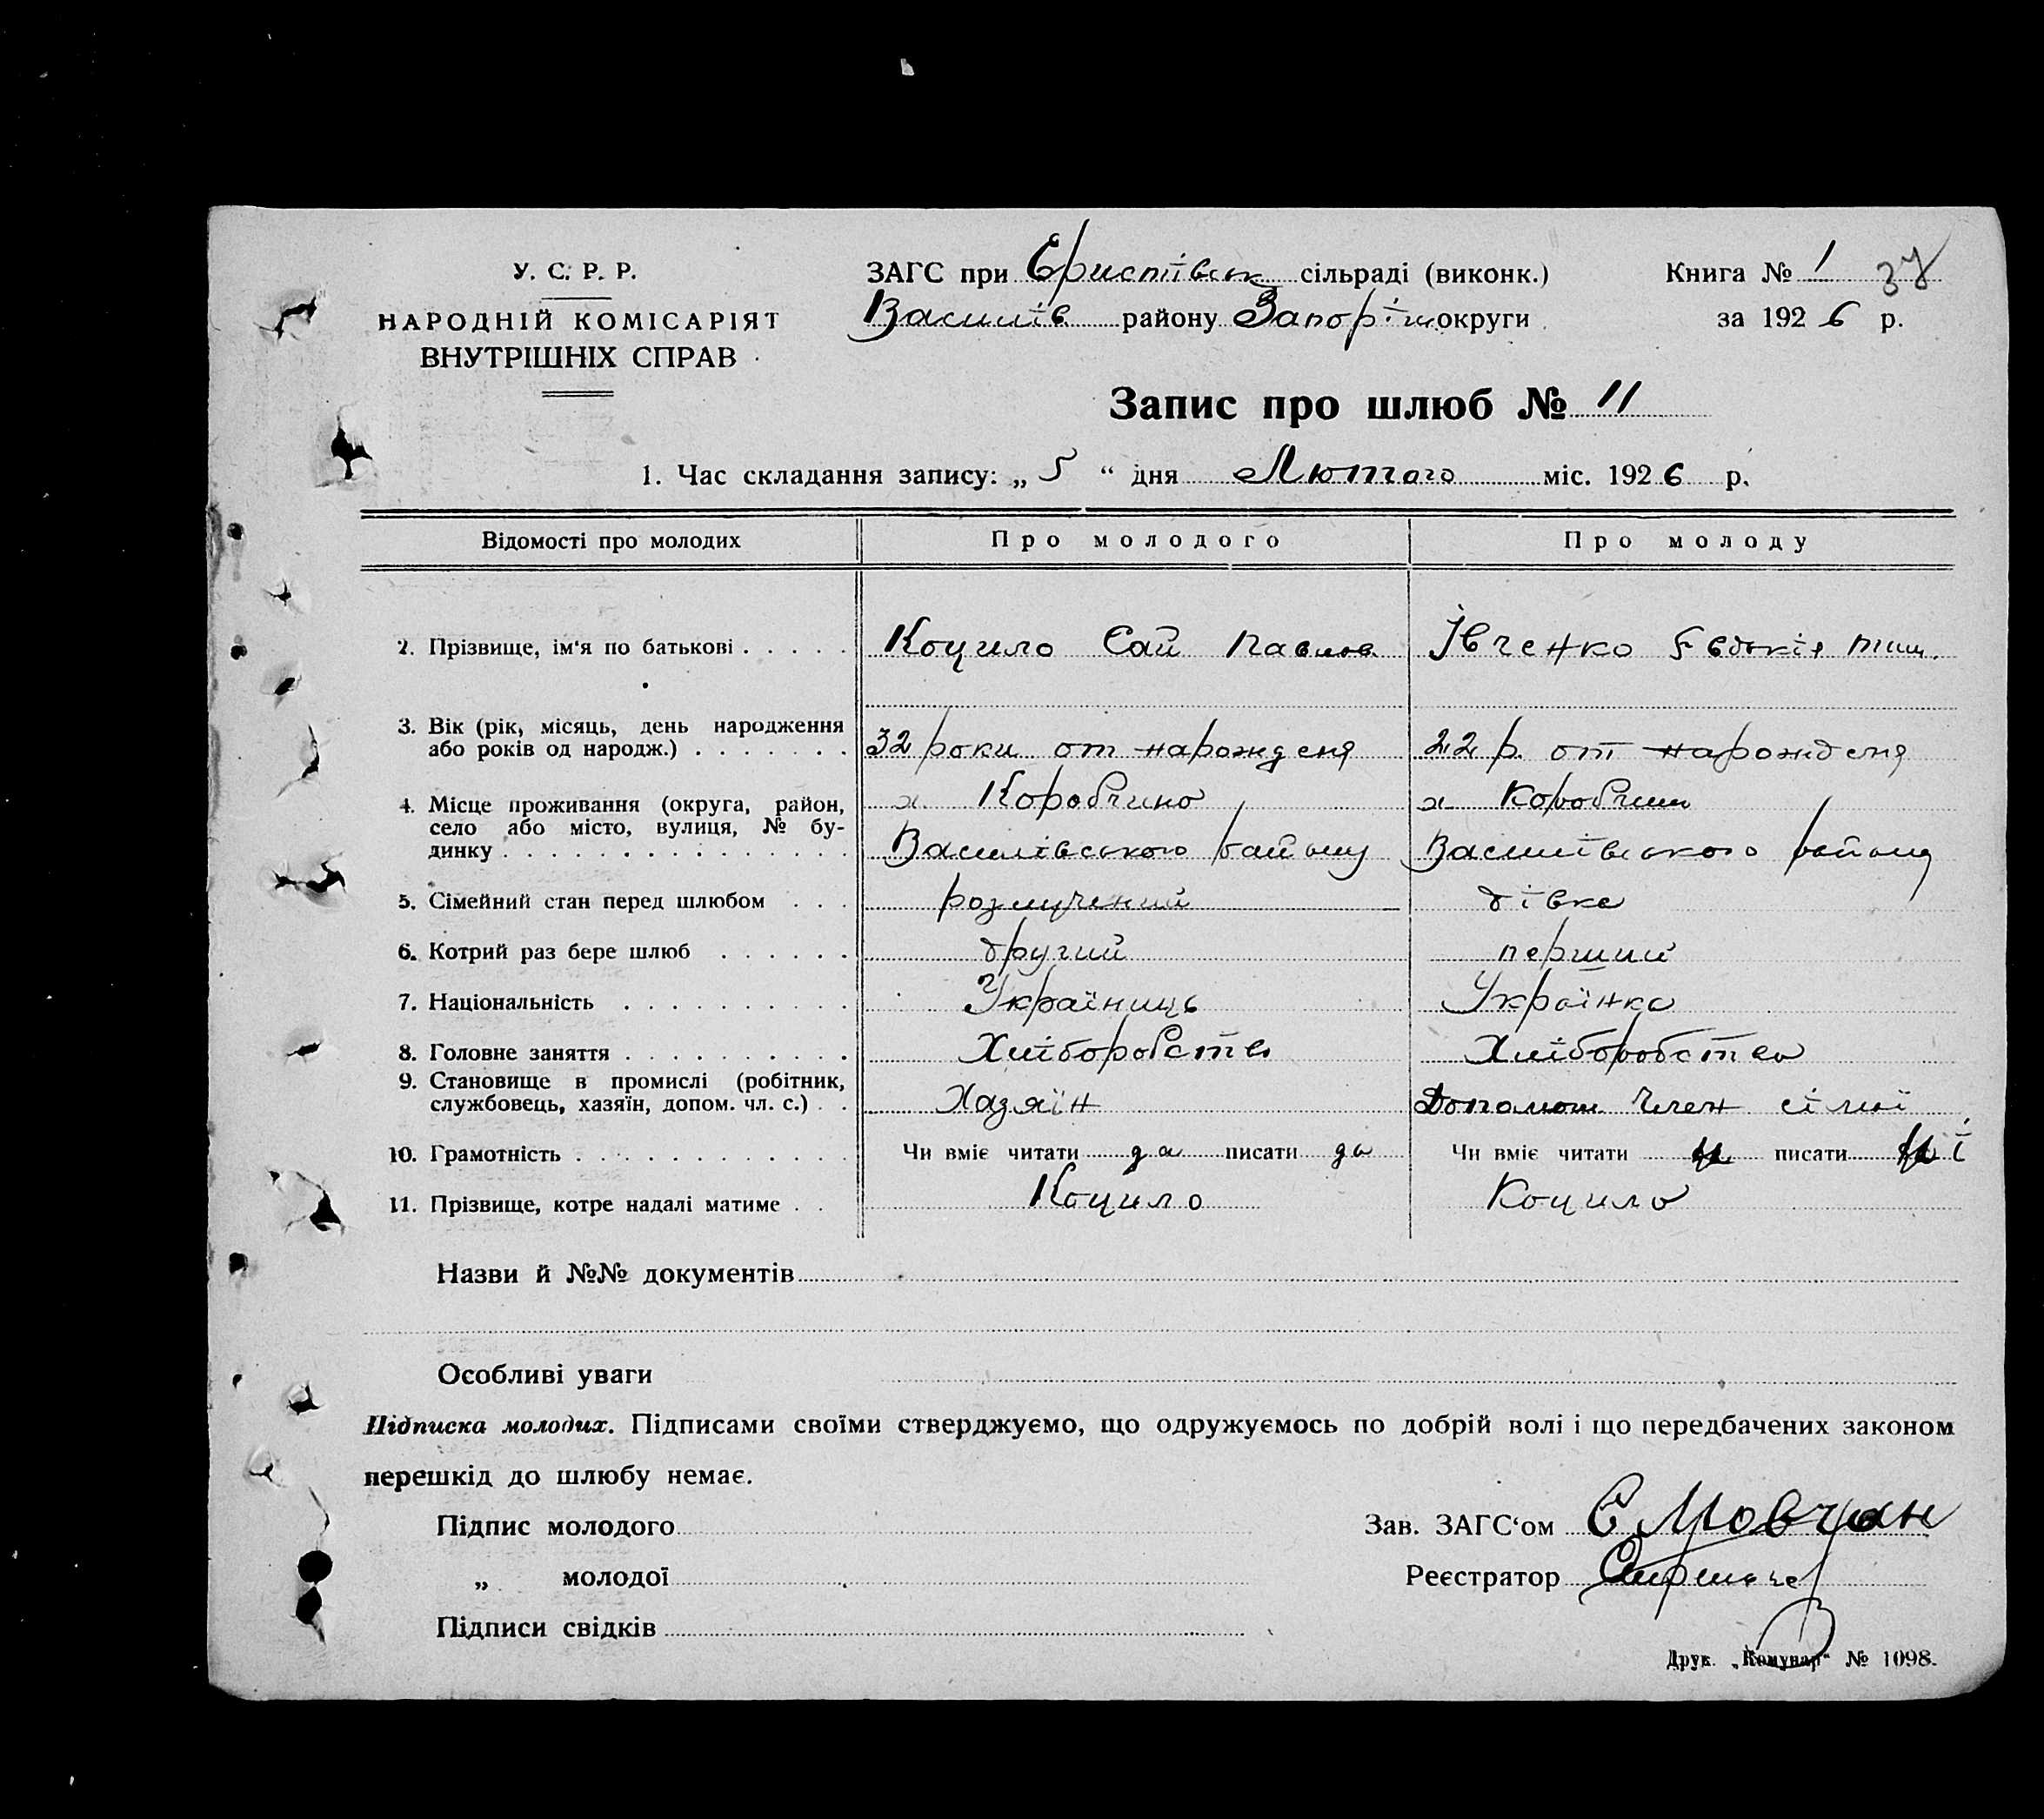 У. С. Р. Р.
НАРОДНІЙ КОМІСАРІЯТ
ВНУТРІШНІХ СПРАВ
ЗАГС при Єристівськ сільраді (виконк.)
Василів району Запоріш округи
Книга № 1
за 1926 р.
Запис про шлюб № 11
1. Час складання запису: „ 5 “ дня Лютого міс. 1926 р.
Відомості про молодих Про молодого Про молоду
2. Прізвище, ім'я по батькові Коцило Сай Павлов. Івченко Євдокія тим.
3. Вік (рік, місяць, день народження
або років од народж.) 32 роки от нарожденя 22 р. от нарожденя
4. Місце проживання (округа, район, х. Коробчино х. Коробчино
село або місто, вулиця, № бу-
динку Василівського району Василівського району
5. Сімейний стан перед шлюбом розлучений дівка
6. Котрий раз бере шлюб другий перший
7. Національність Україниць Українка
8. Головне заняття Хліборобство Хліборобство
9. Становище в промислі (робітник,
службовець, хазяїн, допом. чл. с.) Хазяїн Допомош член сімї
10. Грамотність Чи вміє читати да писати да Чи вміє читати писати
11. Прізвище, котре надалі матиме Коцило Коцило
Назви й №№ документів
Особливі уваги
Підписка молодих. Підписами своїми стверджуємо, що одружуємось по добрій волі і що передбачених законом
перешкід до шлюбу немає.
Підпис молодого
„ молодої
Підписи свідків
Зав. ЗАГС‘ом Є Мовчан
Реєстратор
Друк. „Комунар“ № 1098.